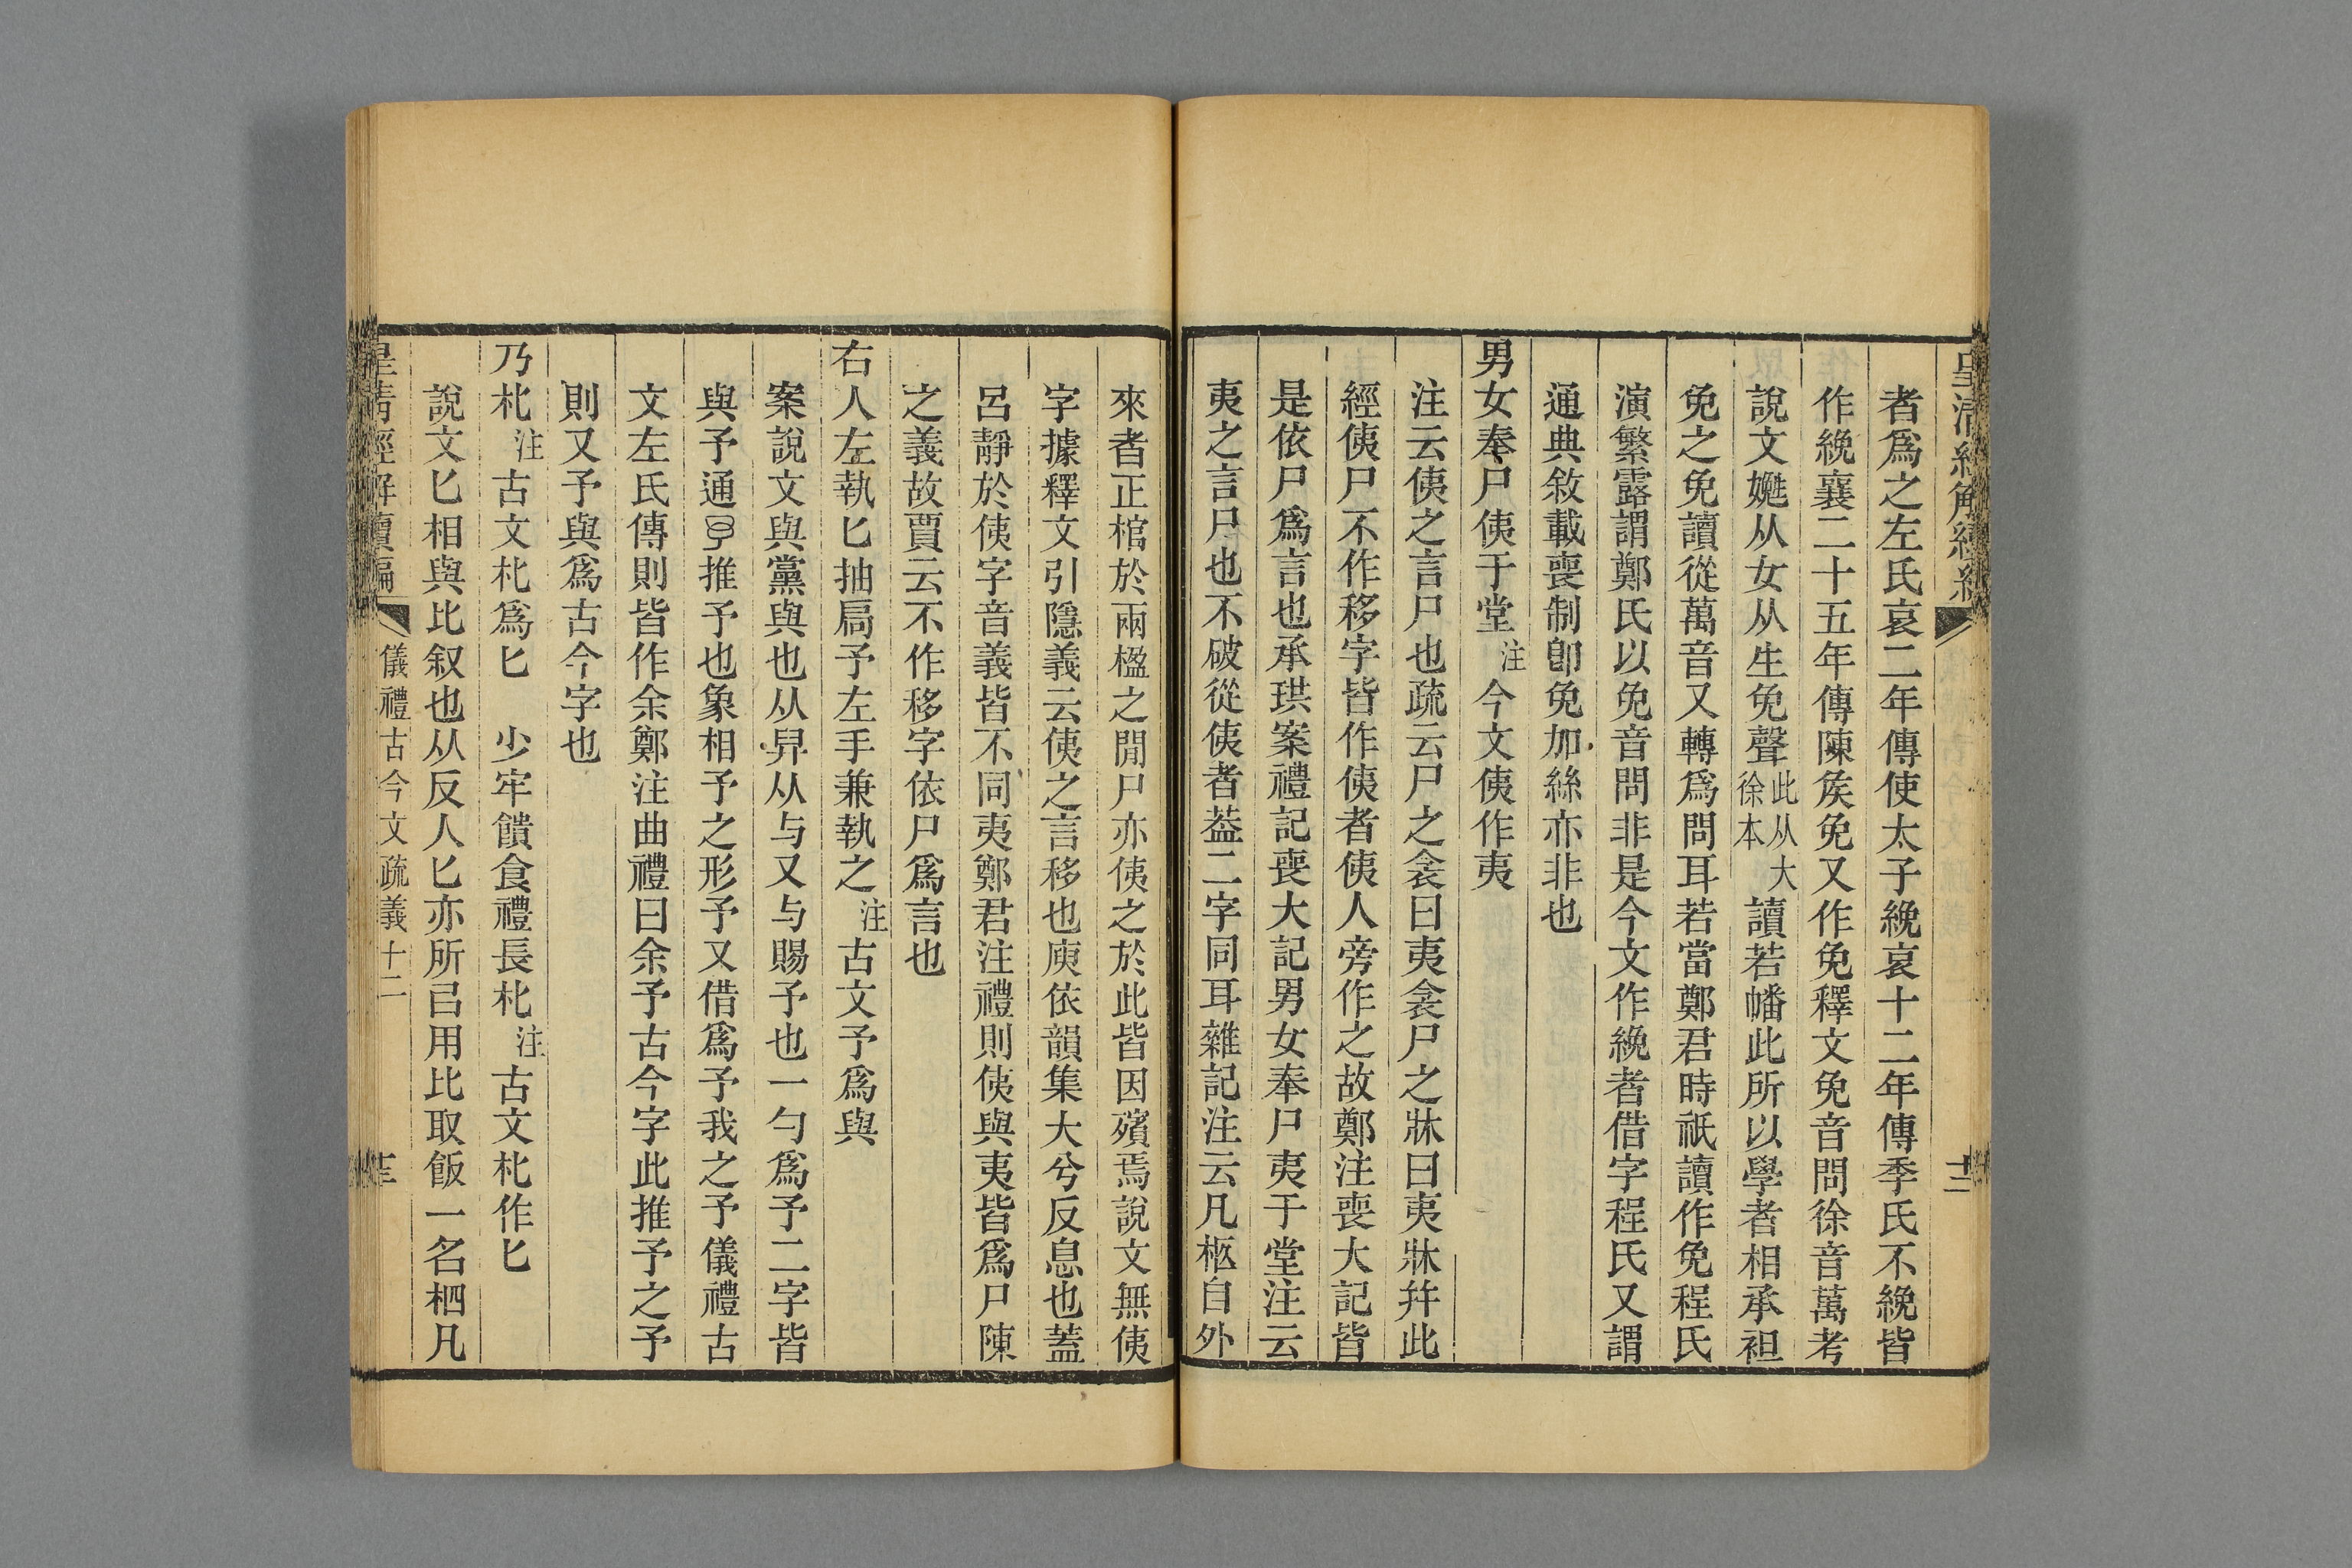 皇清經解續編
十二
者爲之左氏哀二年傳使太子絻哀十二年傳季氏不絻皆
作絻襄二十五年傳陳矦免又作免釋文免音問徐音萬考
說文㝃从女从生免聲此从大徐本讀若幡此所以學者相承袒
免之免讀從萬音又轉爲問耳若當鄭君時祇讀作免程氏
演繁露謂鄭氏以免音問非是今文作絻者借字程氏又謂
通典敘載喪制卽免加絲亦非也
男女奉尸侇于堂注今文侇作夷
注云侇之言尸也疏云尸之衾曰夷衾尸之牀曰夷牀幷此
經侇尸不作移字皆作侇者侇人旁作之故鄭注喪大記皆
是依尸爲言也承珙案禮記喪大記男女奉尸夷于堂注云
夷之言尸也不破從侇者葢二字同耳雜記注云凡柩自外
來者正棺於兩楹之閒尸亦侇之於此皆因殯焉說文無侇
字據釋文引隱義云侇之言移也庾依韻集大兮反息也蓋
呂靜於侇字音義皆不同夷鄭君注禮則侇與夷皆爲尸陳
之義故賈云不作移字依尸爲言也
右人左執匕抽扃予左手兼執之注古文予爲與
案說文與黨與也从舁从与又与賜予也一勺爲予二字皆
與予通推予也象相予之形予又借爲予我之予儀禮古
文左氏傳則皆作余鄭注曲禮曰余予古今字此推予之予
則又予與爲古今字也
乃朼注古文朼爲匕　少牢饋食禮長朼注古文朼作匕
說文匕相與比叙也从反人匕亦所㠯用比取飯一名柶凡
皇清經解續編
儀禮古今文疏義十二
十三